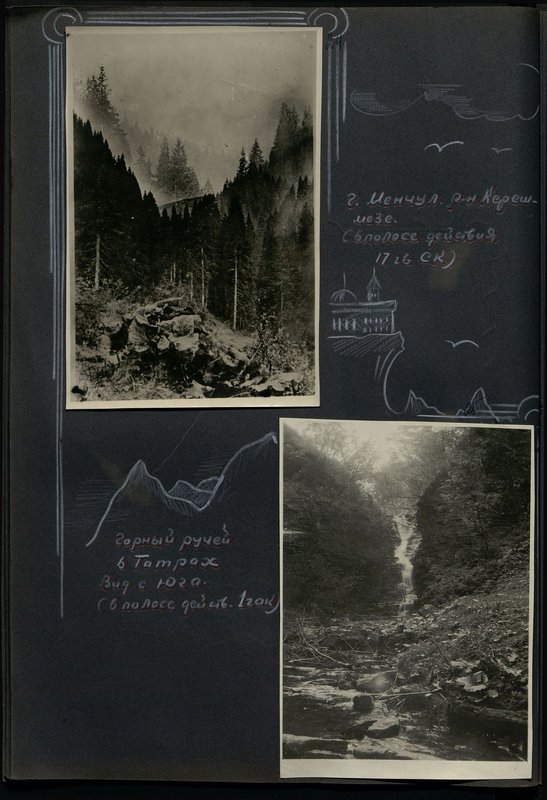 г. Менчул р-н Кереш-
мезе.
(в полосе действия
17 гв СК)
Горный ручей
в Татрах
Вид с Юга.
(в полосе действ. 1 гак)